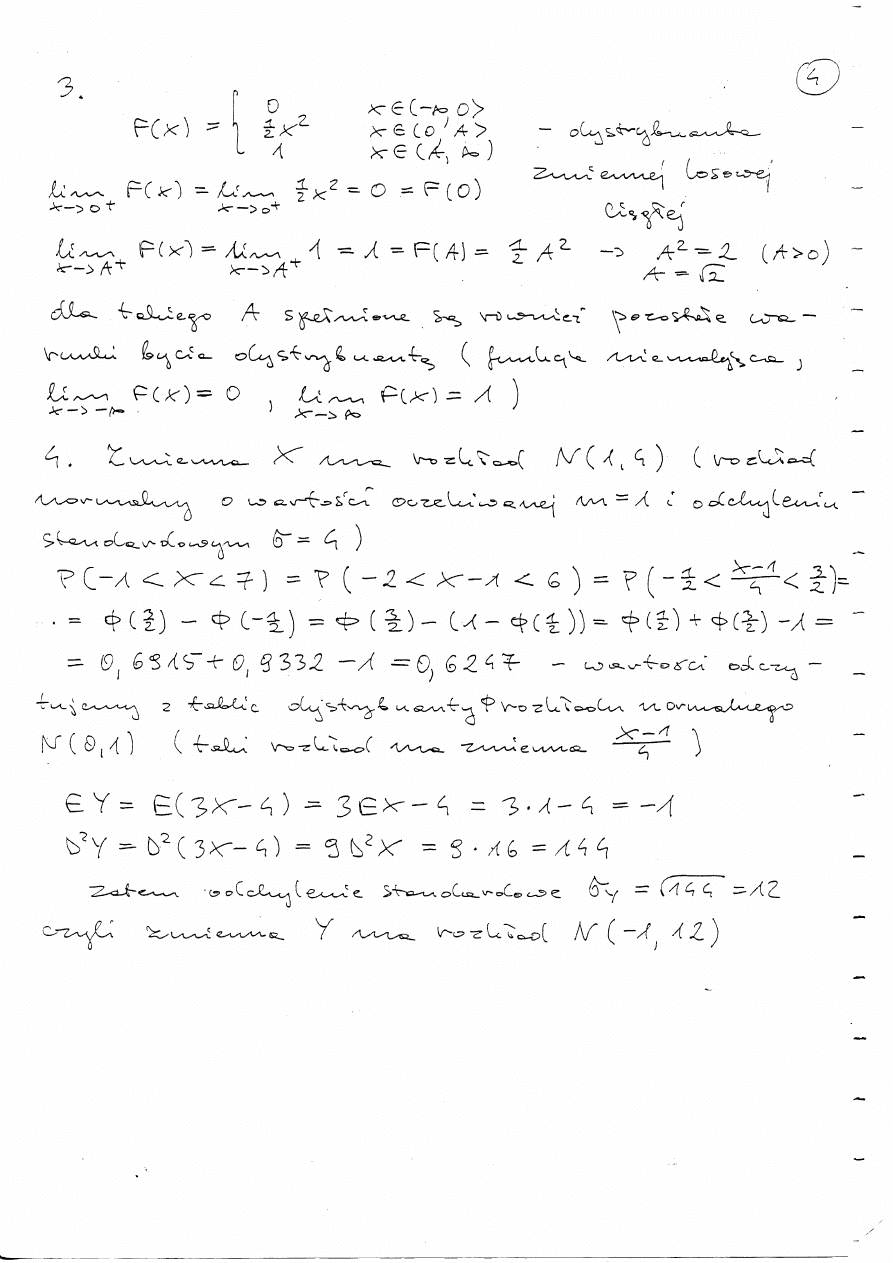 4
3.
F(x) = { 0 x∈(-∞, 0>
½x² x∈(0, A> - dystrybuanta
1 x∈(A, ∞)
zmiennej losowej
ciągłej
lim x->0+ F(x) = lim x->0+ ½x² = 0 = F(0)
lim x->A+ F(x) = lim x->A+ 1 = 1 = F(A) = ½ A² -> A² = 2 (A>0)
A = √2
dla takiego A spełnione są również pozostałe wa-
runki bycia dystrybuantą (funkcja niemalejąca,
lim x->-∞ F(x) = 0 , lim x->∞ F(x) = 1 )
4. Zmienna X ma rozkład N(1,4) (rozkład
normalny o wartości oczekiwanej m=1 i odchyleniu
standardowym σ = 4 )
P(-1 < X < 7) = P(-2 < X-1 < 6) = P(-½ < (X-1)/4 < 3/2) =
= Φ(3/2) - Φ(-½) = Φ(3/2) - (1 - Φ(½)) = Φ(½) + Φ(3/2) - 1 =
= 0,6915 + 0,9332 - 1 = 0,6247 - wartości odczy-
tujemy z tablic dystrybuanty Φ rozkładu normalnego
N(0,1) (taki rozkład ma zmienna (X-1)/4 )
EY = E(3X-4) = 3EX-4 = 3·1-4 = -1
D²Y = D²(3X-4) = 9D²X = 9·16 = 144
Zatem odchylenie standardowe σY = √144 = 12
czyli zmienna Y ma rozkład N(-1, 12)